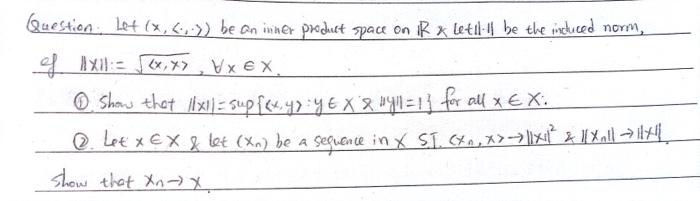 Question. Let (X, <·,·>) be an inner product space on ℝ & let ||·|| be the induced norm,
ef ||x|| := √<x,x>, ∀x ∈ X.
① Show that ||x|| = sup{<x,y> : y ∈ X & ||y|| = 1} for all x ∈ X.
②. Let x ∈ X & let (xn) be a sequence in X ST. <xn, x> → ||x||² & ||xn|| → ||x||.
Show that xn → x